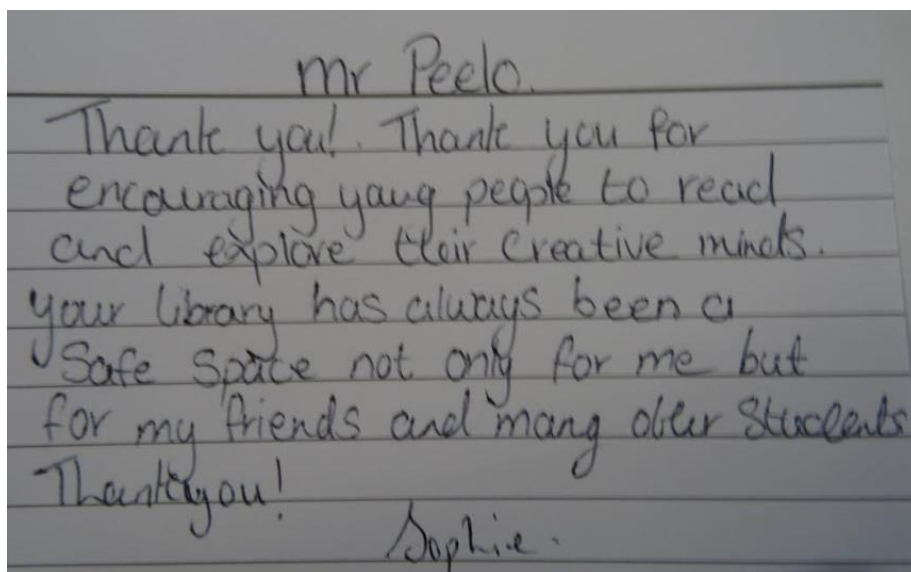 Mr Peelo.
Thank you! Thank you for
encouraging young people to read
and explore their creative minds.
Your library has always been a
Safe space not only for me but
for my friends and many other Students
Thank you!
Sophie.